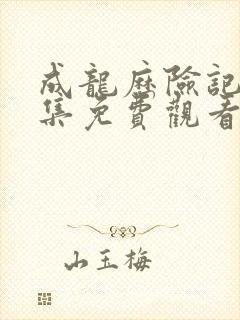 成龍歷險記
集免費觀看
山玉梅